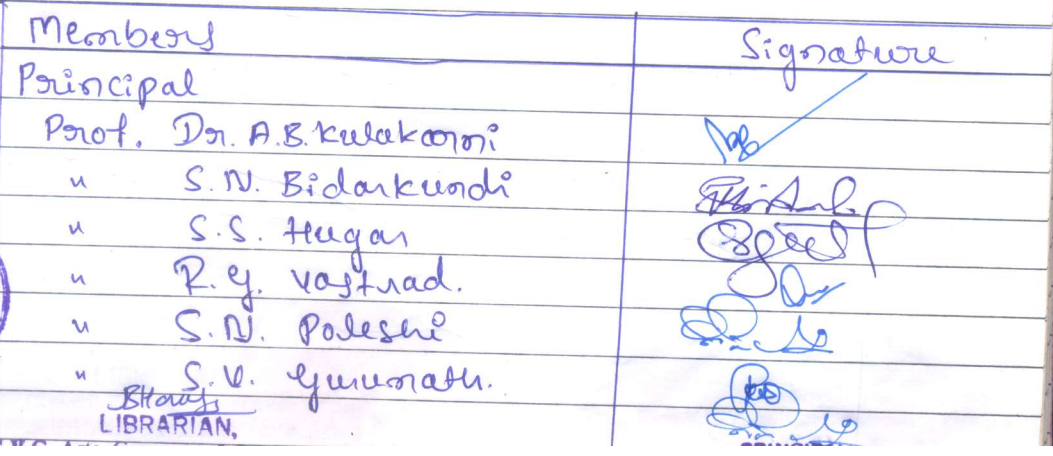 Members Signature
Principal
Prof. Dr. A.B. Kulakarni
" S.N. Bidarkundi
" S.S. Hugar
" R.G. Vastrad.
" S.N. Paleshi
" S.V. Gurumath.
LIBRARIAN,